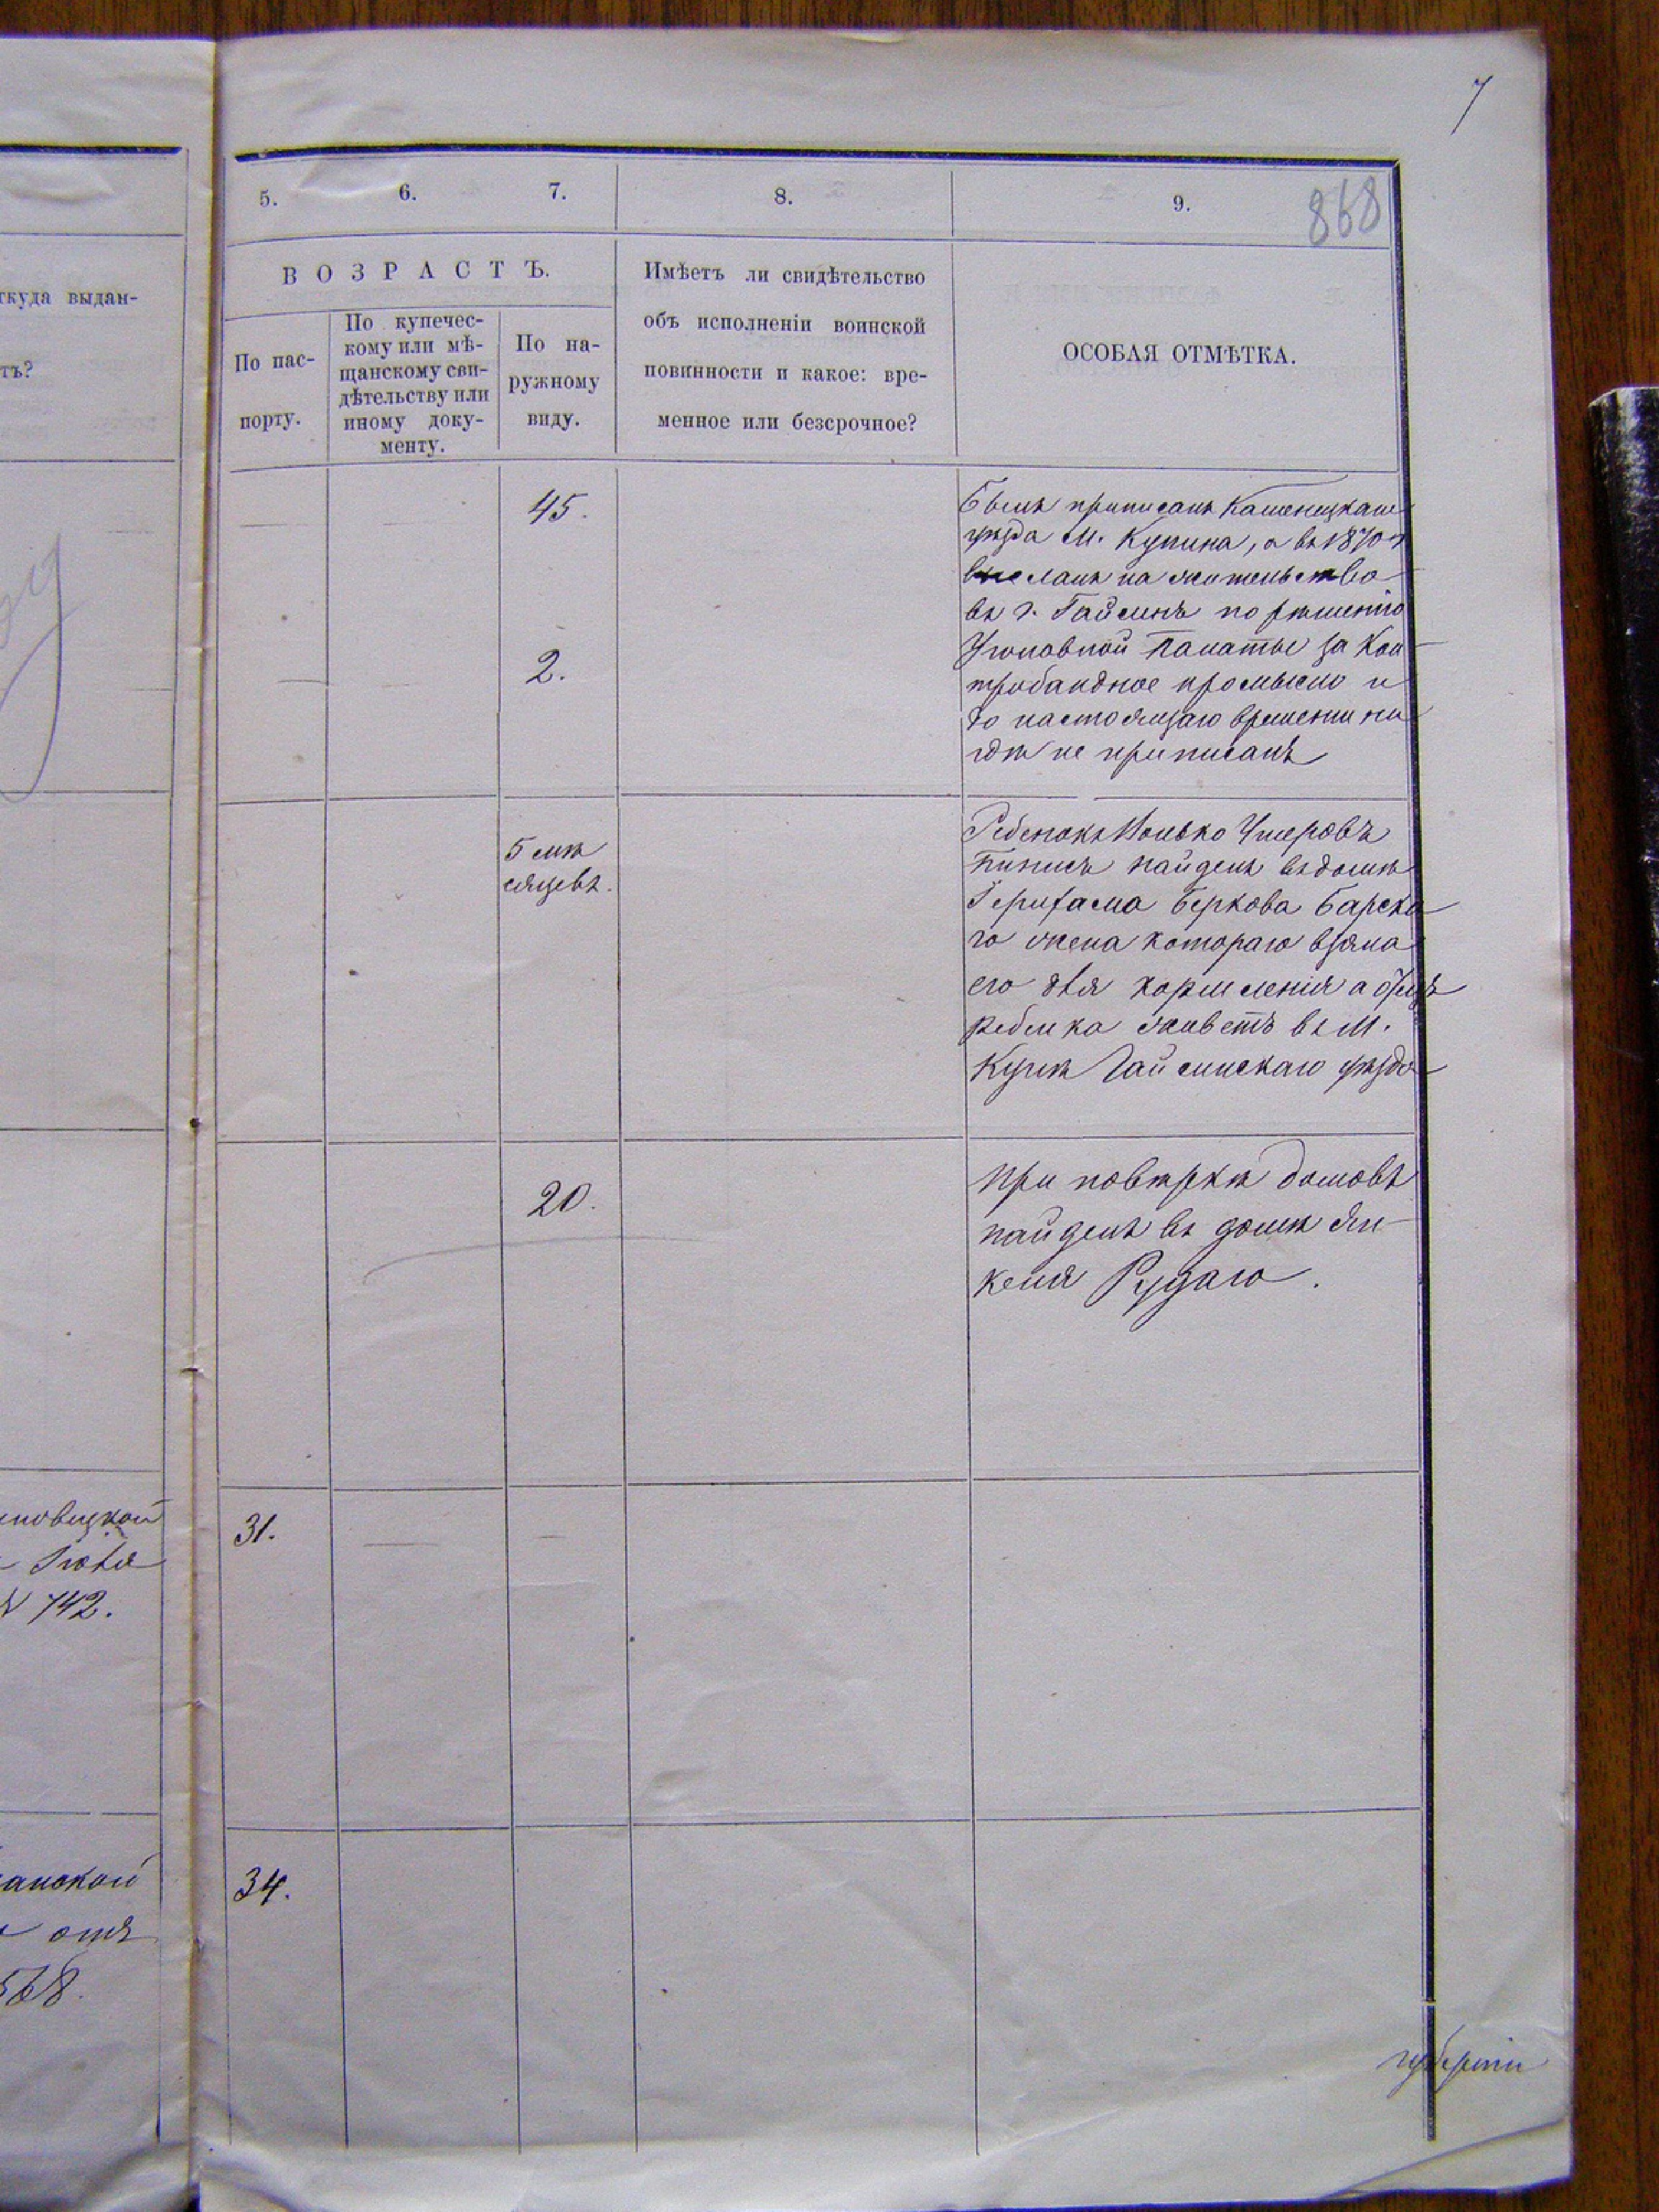 7
5.
6.
7.
8.
9.
868
ВОЗРАСТЪ.
По пас-
порту.
По купечес-
кому или мѣ-
щанскому сви-
дѣтельству или
иному доку-
менту.
По на-
ружному
виду.
Имѣетъ ли свидѣтельство
объ исполненіи воинской
повинности и какое: вре-
менное или безсрочное?
ОСОБАЯ ОТМѢТКА.
ткуда выдан-
тъ?
45.
2.
Былъ приписанъ Каменецкаго
уѣзда м. Купина, а въ 1870 г
высланъ на жительство
въ г. Гайсинъ по рѣшенію
Уголовной Палаты за Кон-
трабандное промысло и
до настоящаго времени ни
гдѣ не приписанъ
5 мѣ
сяцевъ.
Ребенокъ
найденъ въ домѣ
Беркова Барска
го жена котораго взяла
его для кормленія а отецъ
ребенка живетъ въ м.
Кунѣ Гайсинскаго уѣзда
20.
При повѣркѣ домовъ
найденъ въ домѣ Ян-
келя Рудаго.
31.
новицкой
Іюля
№ 742.
34.
анской
отъ
568.
губерніи